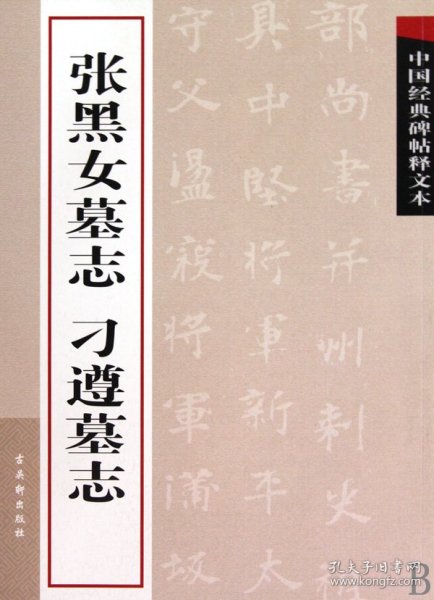 中国经典碑帖释文本
张黑女墓志 刁遵墓志
部尚书并州刺史
具中坚将军新平太
守父盪寇将军蒲坂
古吴轩出版社
孔夫子旧书网
www.kongfz.com
B